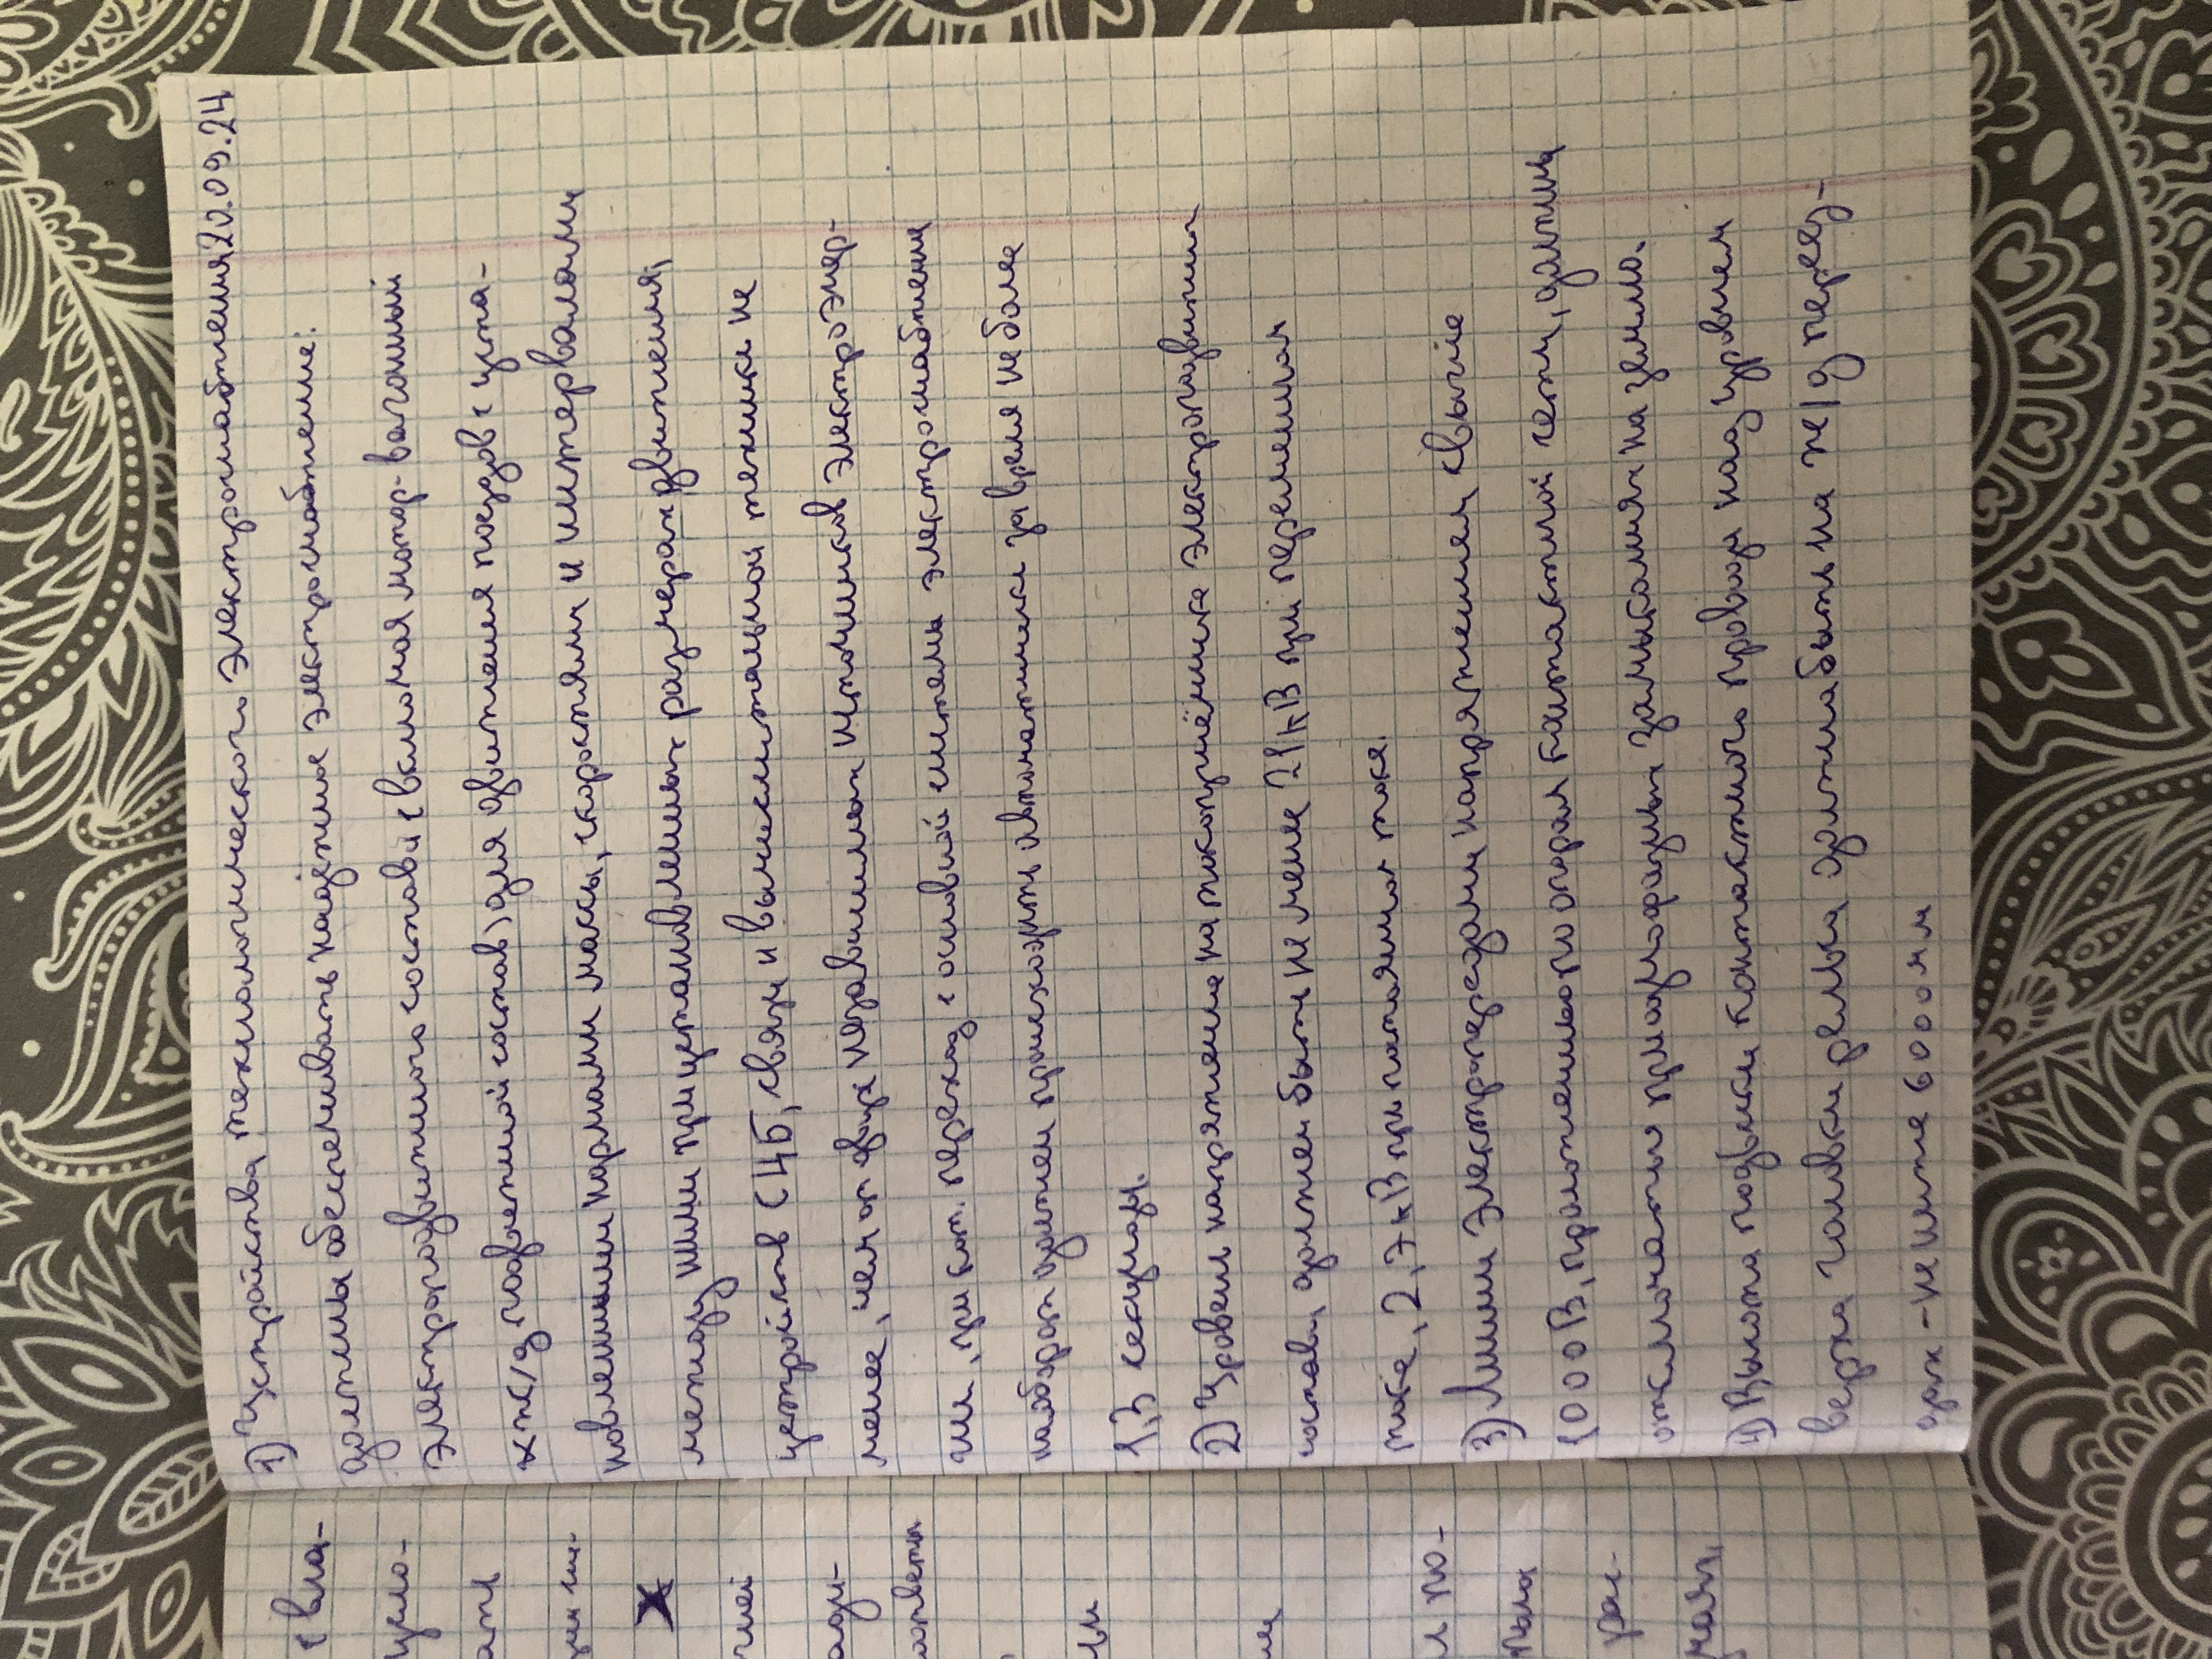 20.09.24
1) Устройства технологического электроснабжения
должны обеспечивать надёжное электроснабжение:
электроподвижного состава (включая мотор-вагонный
ж/д подвижной состав) для движения поездов с уста-
новленными нормами массы, скоростями и интервалами
между ними при установленных размерах движения,
устройств СЦБ, связи и вычислительной техники не
менее, чем от двух независимых источников электроэнер-
гии, при кот. переход с основной системы электроснабжения
на резерв должен происходить автоматически за время не более
1,3 секунды.
2) Уровень напряжения на токоприёмнике электроподвижного
состава, должен быть не менее 21кВ при переменном
токе, 2,7кВ при постоянном токе.
3) Линии электропередачи напряжением свыше
1000В, проложенные по опорам контактной сети, должны
отключаться при однофазных замыканиях на землю.
4) Высота подвески контактного провода над уровнем
верха головки рельса должна быть на ж/д переез-
дах - не ниже 6000мм
с вла-
ции
X
ади-
и по-
рас-